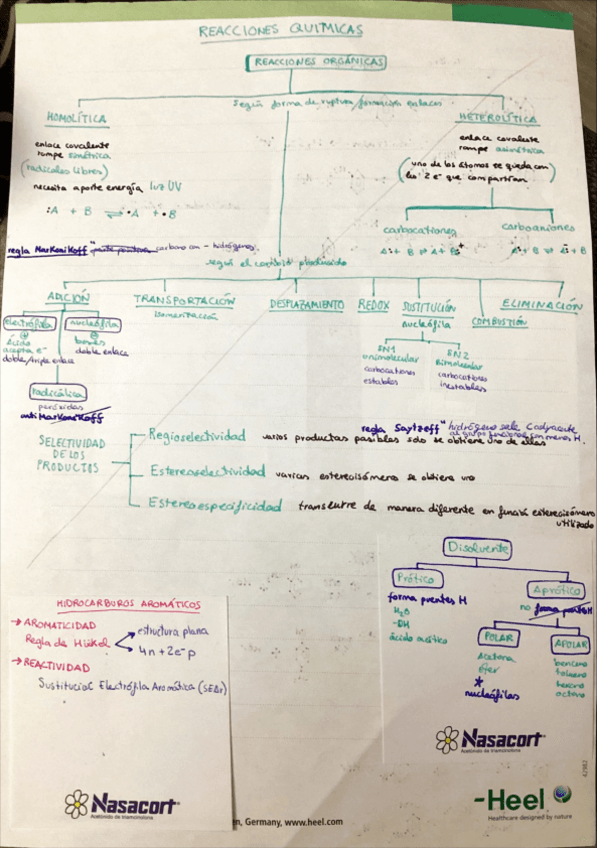 REACCIONES QUIMICAS
REACCIONES ORGÁNICAS
según forma de ruptura/formación enlaces
HOMOLÍTICA
enlace covalente
rompe simétrica
(radicales libres)
necesita aporte energía luz UV
:A + B ⇌ •A + •B
HETEROLÍTICA
enlace covalente
rompe asimétrica
(uno de los átomos se queda con
los 2 e⁻ que compartían)
carbocationes
carboaniones
regla MarKoniKoff " carbono con - hidrógenos.
según el producido
ADICIÓN
electrófila
Ácido
acepta e⁻
doble/triple enlace
nucleófila
bases
doble enlace
Radicálica
peróxidos
anti MarKoniKoff
TRANSPORTACIÓN
Isomerización
DESPLAZAMIENTO
REDOX
SUSTITUCIÓN
nucleófila
SN1
unimolecular
carbocationes
estables
SN2
Bimolecular
carbocationes
inestables
COMBUSTIÓN
ELIMINACIÓN
SELECTIVIDAD
DE LOS
PRODUCTOS
regla Saytzeff " hidrógeno sale C adyacente
al grupo funcional con menos H.
Regioselectividad varios productos posibles solo se obtiene uno de ellos
Estereoselectividad varios estereoisómeros se obtiene uno
Estereoespecificidad transcurre de manera diferente en función estereoisómero
utilizado
HIDROCARBUROS AROMÁTICOS
→ AROMATICIDAD
Regla de Hükel
estructura plana
4n + 2e⁻ p
→ REACTIVIDAD
Sustitución Electrófila Aromática (SEAr)
Nasacort®
Acetónido de triamcinolona
Disolvente
Prótico
forma puentes H
H₂O
-OH
ácido acético
Aprótico
no forma puentes H
POLAR
Acetona
éter
*
nucleófilas
APOLAR
benceno
tolueno
hexano
octano
Nasacort®
Acetónido de triamcinolona
42982
-Heel
Healthcare designed by nature
en, Germany, www.heel.com